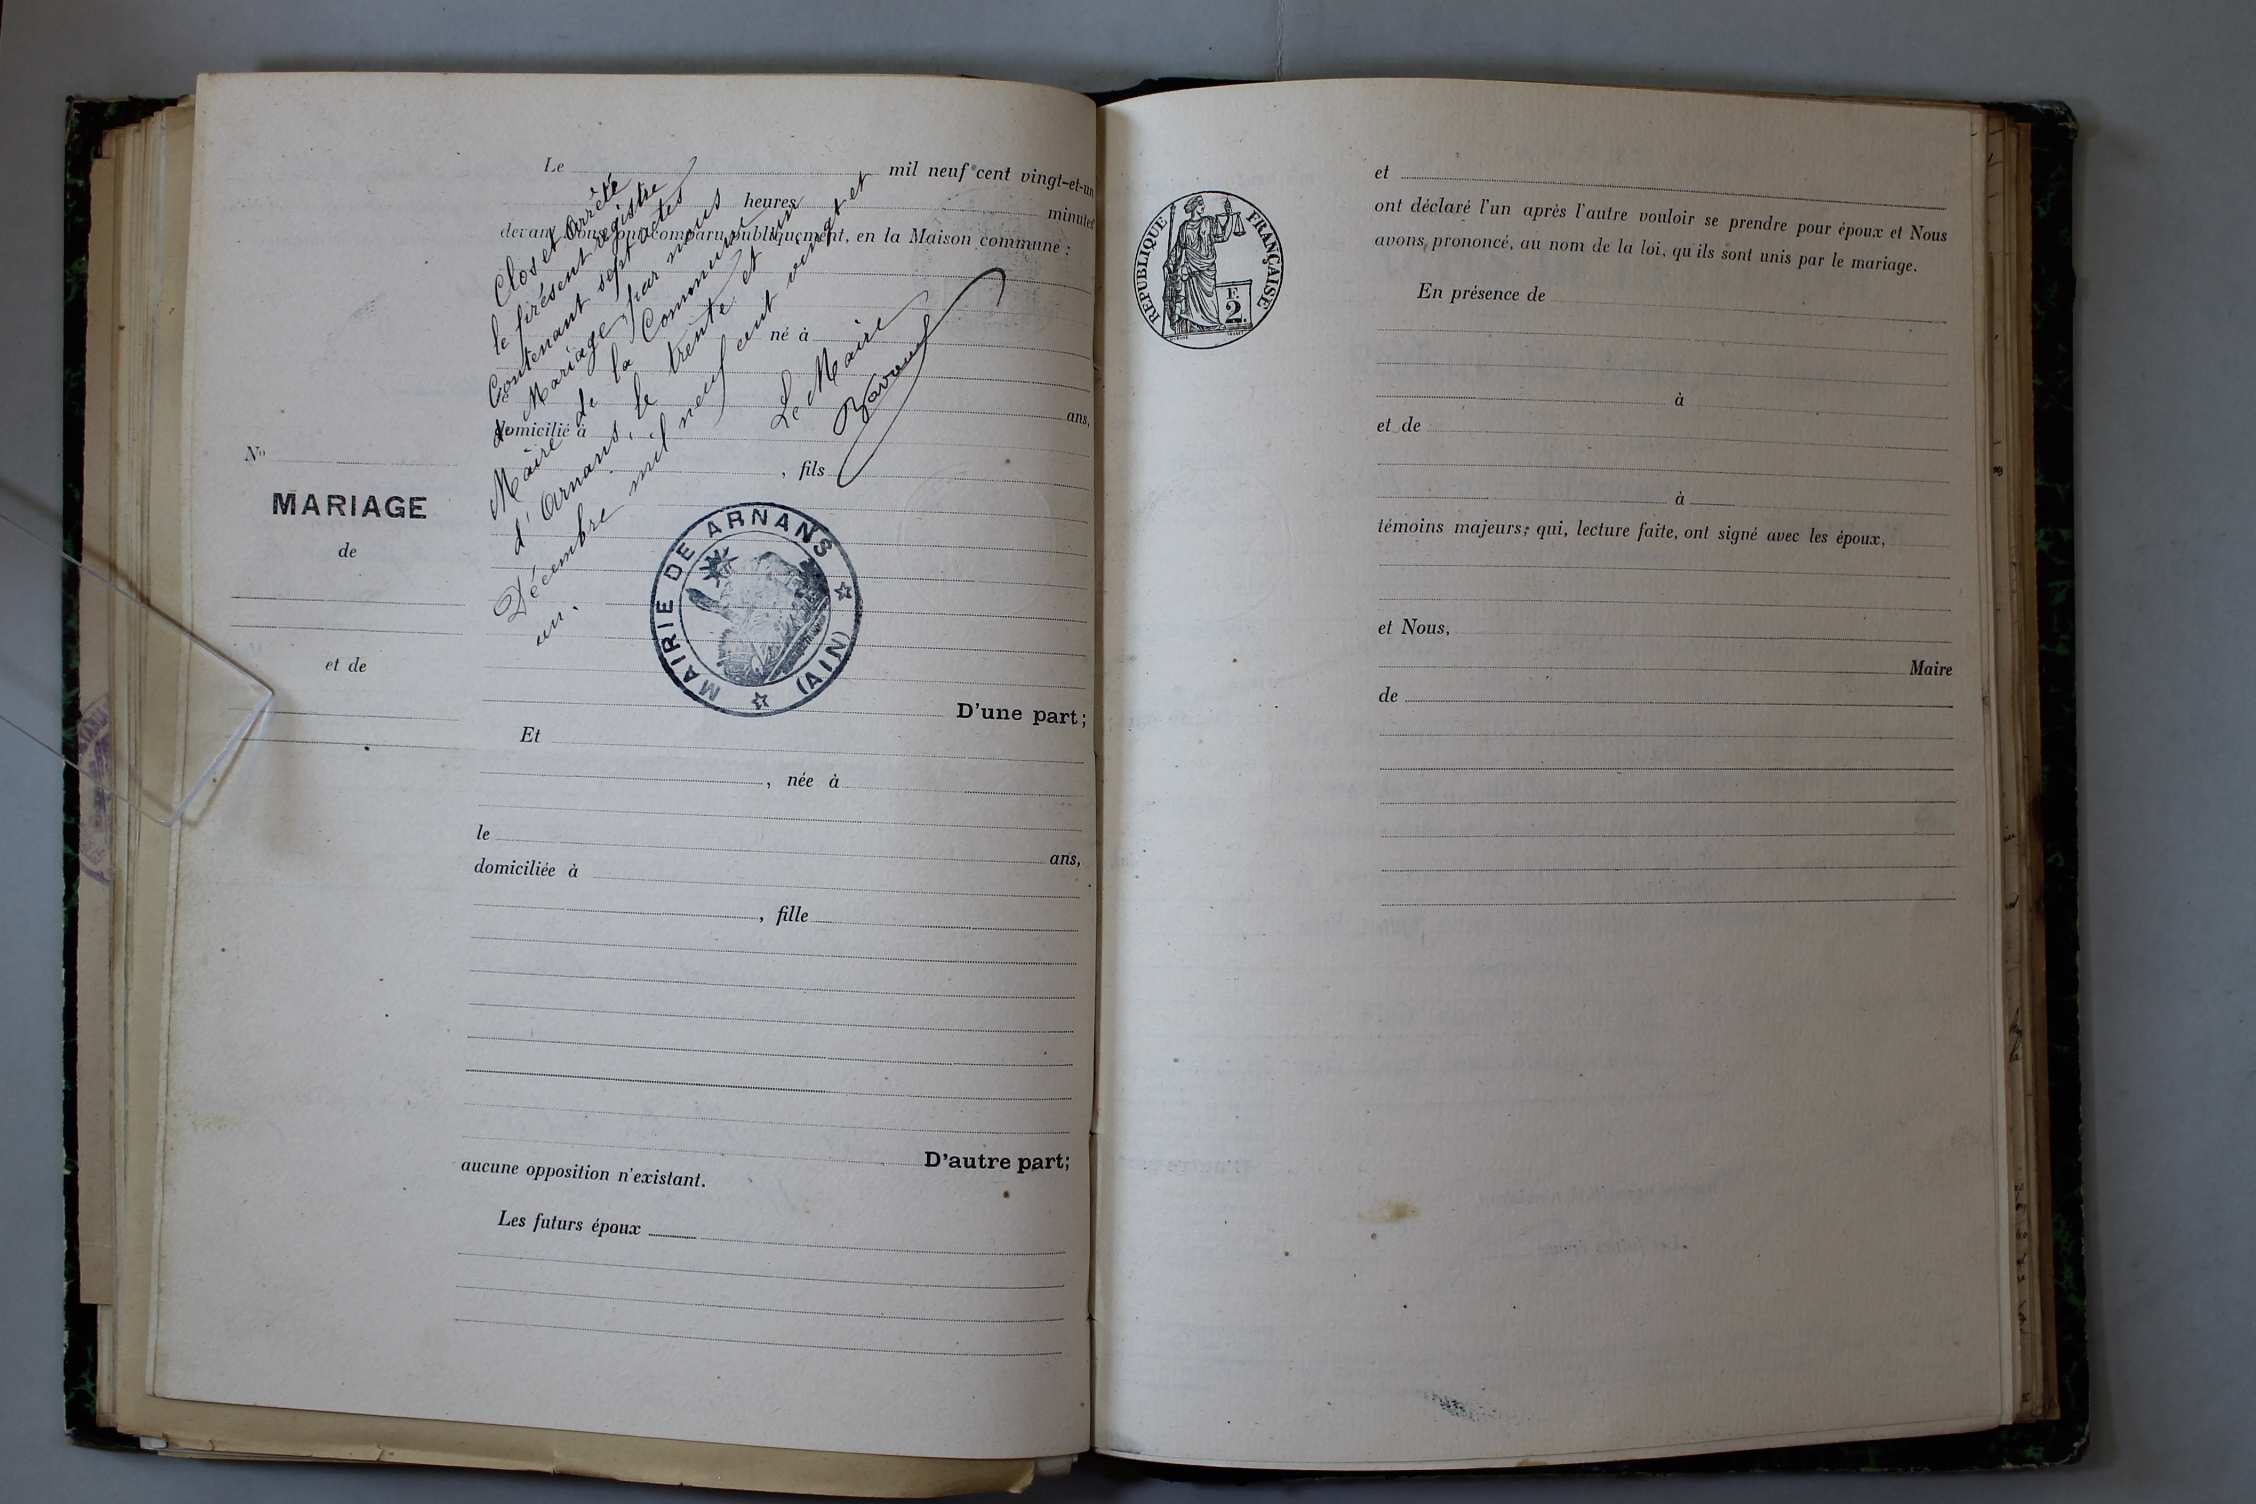 N°
MARIAGE
de
et de
Le mil neuf cent vingt-et-un
heures minutes
devant Nous ont comparu publiquement, en la Maison commune :
né à
ans,
domicilié à
, fils
D'une part;
Et
, née à
le ans,
domiciliée à
, fille
D'autre part;
aucune opposition n'existant.
Les futurs époux
Clos et Arrêté
le présent registre
Contenant sept actes
de Mariage par nous
Maire de la Commune
d'Arnans, le trente et un
Décembre mil neuf cent vingt et
un.
Le Maire
MAIRIE DE ARNANS
(AIN)
RÉPUBLIQUE FRANÇAISE
F.
2.
et
ont déclaré l'un après l'autre vouloir se prendre pour époux et Nous
avons prononcé, au nom de la loi, qu'ils sont unis par le mariage.
En présence de
à
et de
à
témoins majeurs; qui, lecture faite, ont signé avec les époux,
et Nous,
Maire
de